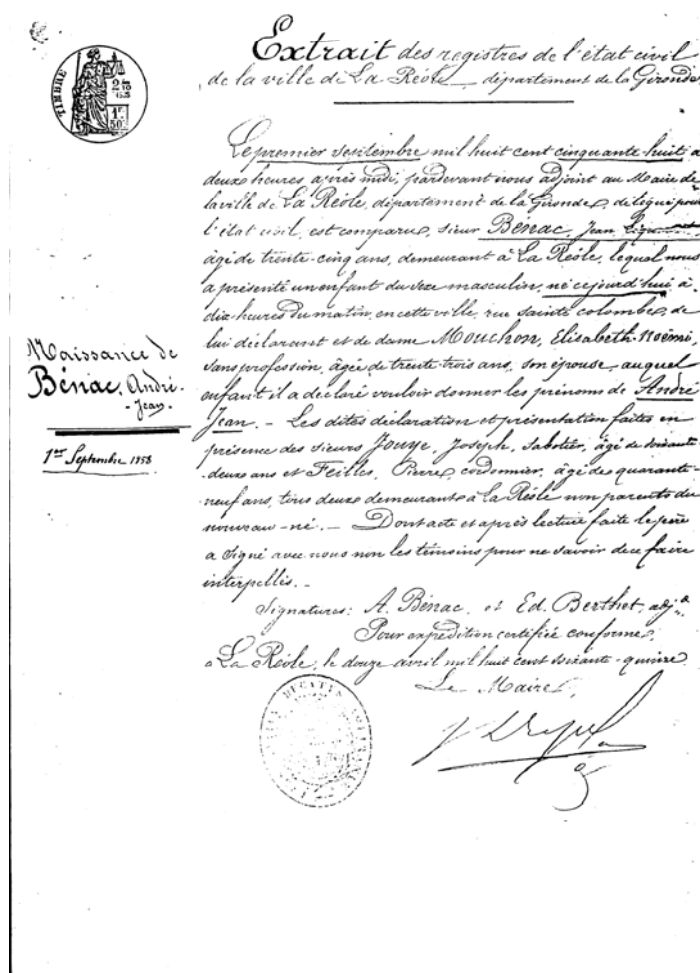 TIMBRE
2
1F
50c
Extrait des registres de l'état civil
de la ville de La Réole département de la Gironde
Le premier septembre mil huit cent cinquante-huit, à
deux heures après midi, pardevant nous adjoint au Maire de
la ville de La Réole, département de la Gironde, délégué pour
l'état civil, est comparu, sieur Bénac, Jean
âgé de trente-cinq ans, demeurant à La Réole, lequel nous
a présenté un enfant du sexe masculin, né cejourd'hui à
dix heures du matin, en cette ville, rue sainte colombe, de
lui déclarant et de dame Mouchon, Elisabeth-Noëmi,
sans profession, âgée de trente trois ans, son épouse, auquel
enfant il a déclaré vouloir donner les prénoms de André
Jean. - Les dites déclaration et présentation faites en
présence des sieurs Jouye, Joseph, Sabotier, âgé de soixante-
deux ans et Feilles, Pierre, cordonnier, âgé de quarante-
neuf ans, tous deux demeurant à La Réole non parents du
nouveau-né. - Dont acte et après lecture faite le père
a signé avec nous non les témoins pour ne savoir de ce faire
interpellés. -
Signatures: A. Bénac, et Ed. Berthet, adjt.
Pour expédition certifiée conforme,
à La Réole, le douze avril mil huit cent soixante-quinze
Le Maire,
Naissance de
Bénac, André-
- Jean.
1er Septembre 1858